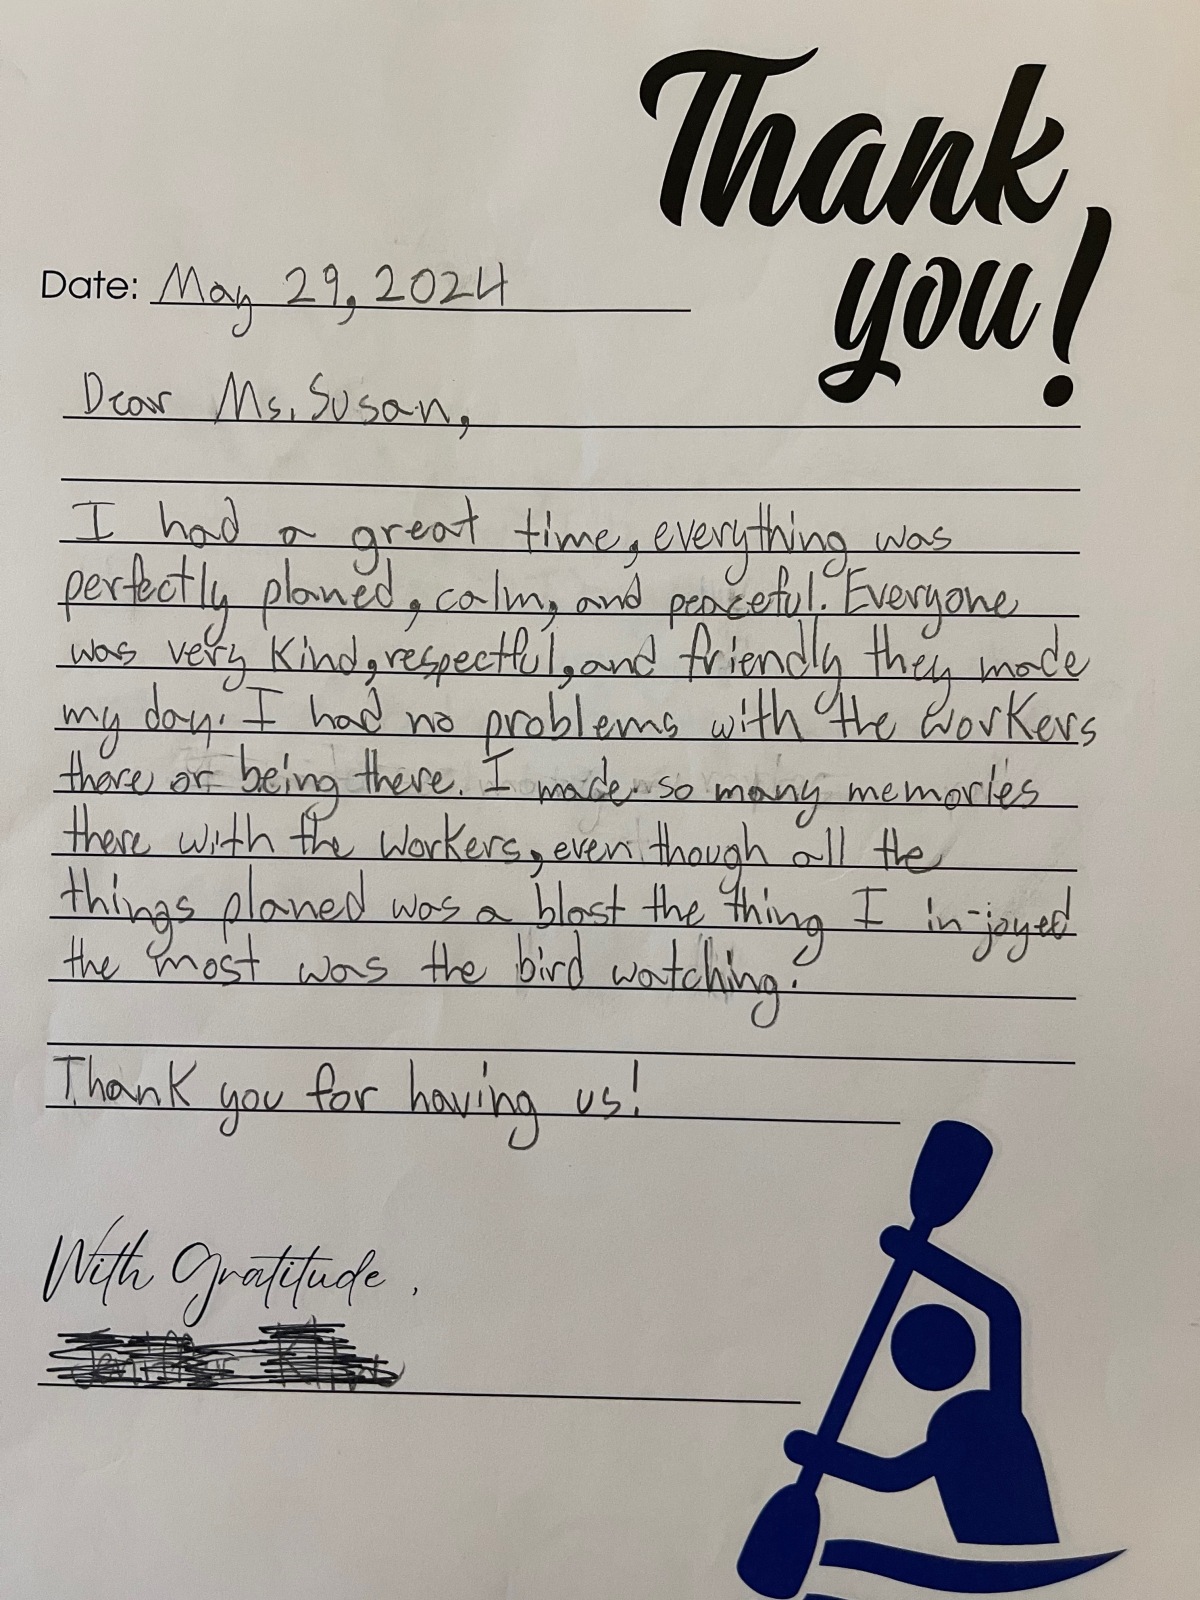 Thank
you!
Date: May 29, 2024
Dear Ms. Susan,
I had a great time, everything was
perfectly planed, calm, and peaceful. Everyone
was very kind, respectful, and friendly they made
my day. I had no problems with the workers
there or being there. I made so many memories
there with the workers, even though all the
things planed was a blast the thing I in-joyed
the most was the bird watching.
Thank you for having us!
With Gratitude,